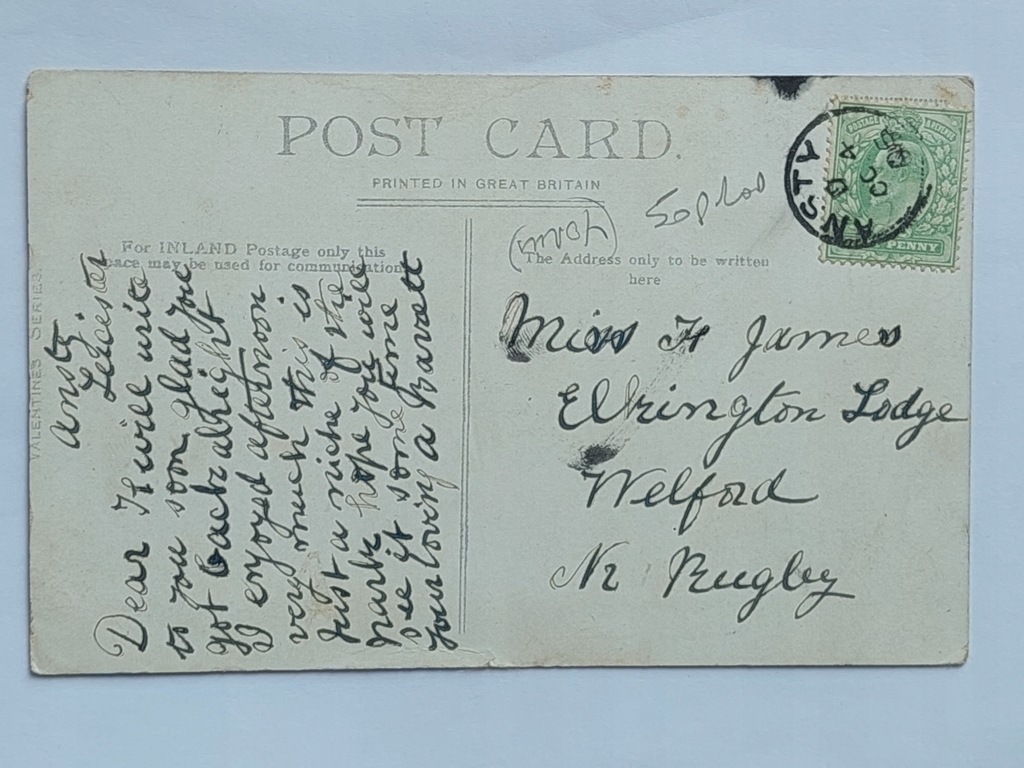 POST CARD.
PRINTED IN GREAT BRITAIN
For INLAND Postage only this
space may be used for communication
The Address only to be written
here
VALENTINES SERIES.
Ansty
Leicester
Dear H will write
to you soon glad you
got back alright
I enjoyed afternoon
very much this is
just a niche of the
park hope you will
see it some time
your loving a Barett
Miss H James
Elkington Lodge
Welford
Nr Rugby
ANSTY
PENNY
POSTAGE